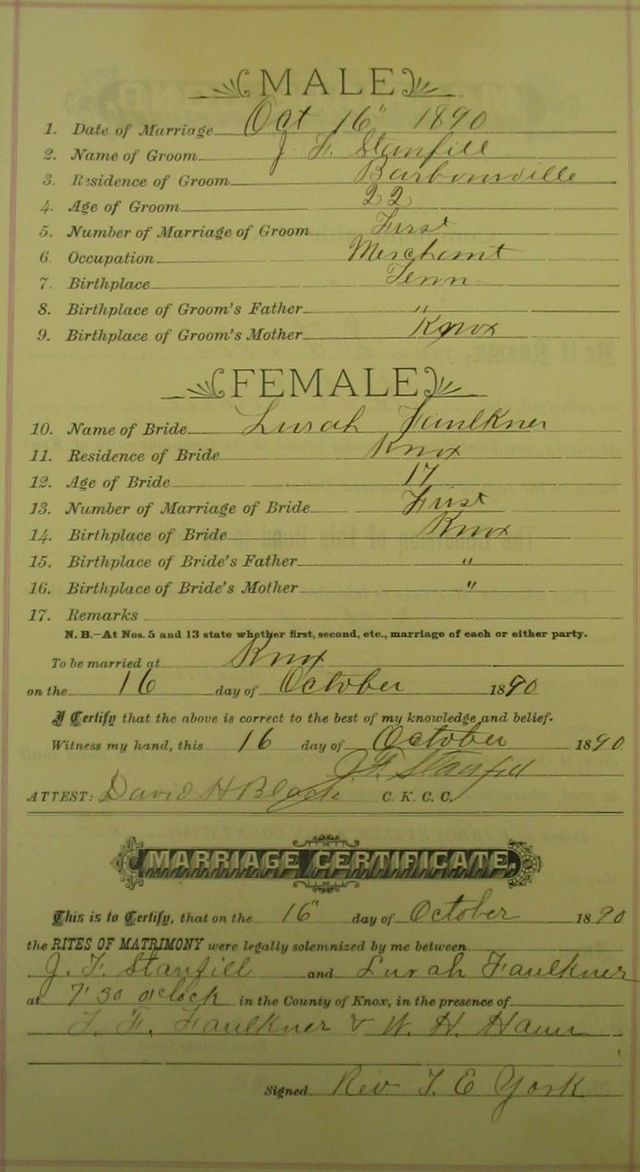 MALE
1. Date of Marriage Oct 16" 1890
2. Name of Groom J F Stanfill
3. Residence of Groom Barbourville
4. Age of Groom 22
5. Number of Marriage of Groom First
6. Occupation Merchant
7. Birthplace Tenn
8. Birthplace of Groom's Father "
9. Birthplace of Groom's Mother Knox
FEMALE
10. Name of Bride Lurah Faulkner
11. Residence of Bride Knox
12. Age of Bride 17
13. Number of Marriage of Bride First
14. Birthplace of Bride Knox
15. Birthplace of Bride's Father "
16. Birthplace of Bride's Mother "
17. Remarks
N.B.—At Nos. 5 and 13 state whether first, second, etc., marriage of each or either party.
To be married at Knox
on the 16 day of October 1890
I Certify that the above is correct to the best of my knowledge and belief.
Witness my hand, this 16 day of October 1890
J F Stanfill
ATTEST: David H Black C. K. C. C.
MARRIAGE CERTIFICATE.
This is to Certify, that on the 16" day of October 1890
the RITES OF MATRIMONY were legally solemnized by me between
J. F. Stanfill and Lurah Faulkner
at 7 30 o'clock in the County of Knox, in the presence of
Faulkner & W. H.
Signed Rev York